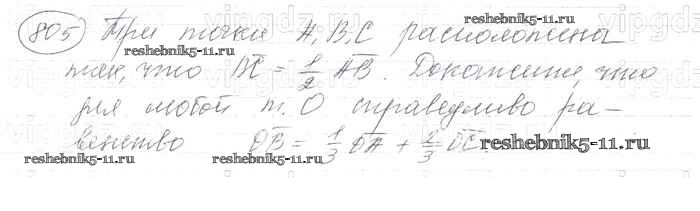 805 Три точки A, B, C расположены
так, что BC = 1/2 AB. Докажите, что
для любой т. O справедливо ра-
венство OB = 1/3 OA + 2/3 OC.
reshebnik5-11.ru
reshebnik5-11.ru
reshebnik5-11.ru
reshebnik5-11.ru
reshebnik5-11.ru
vipgdz
vipgdz